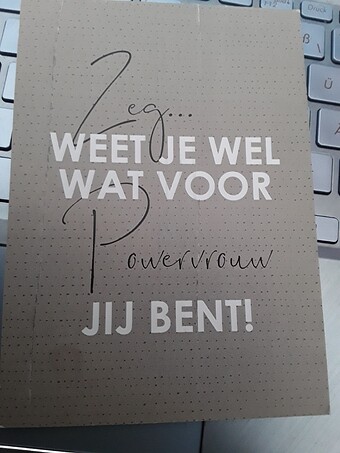 Zeg...
WEET JE WEL
WAT VOOR
Powervrouw
JIJ BENT!
ß
Ü
Druck